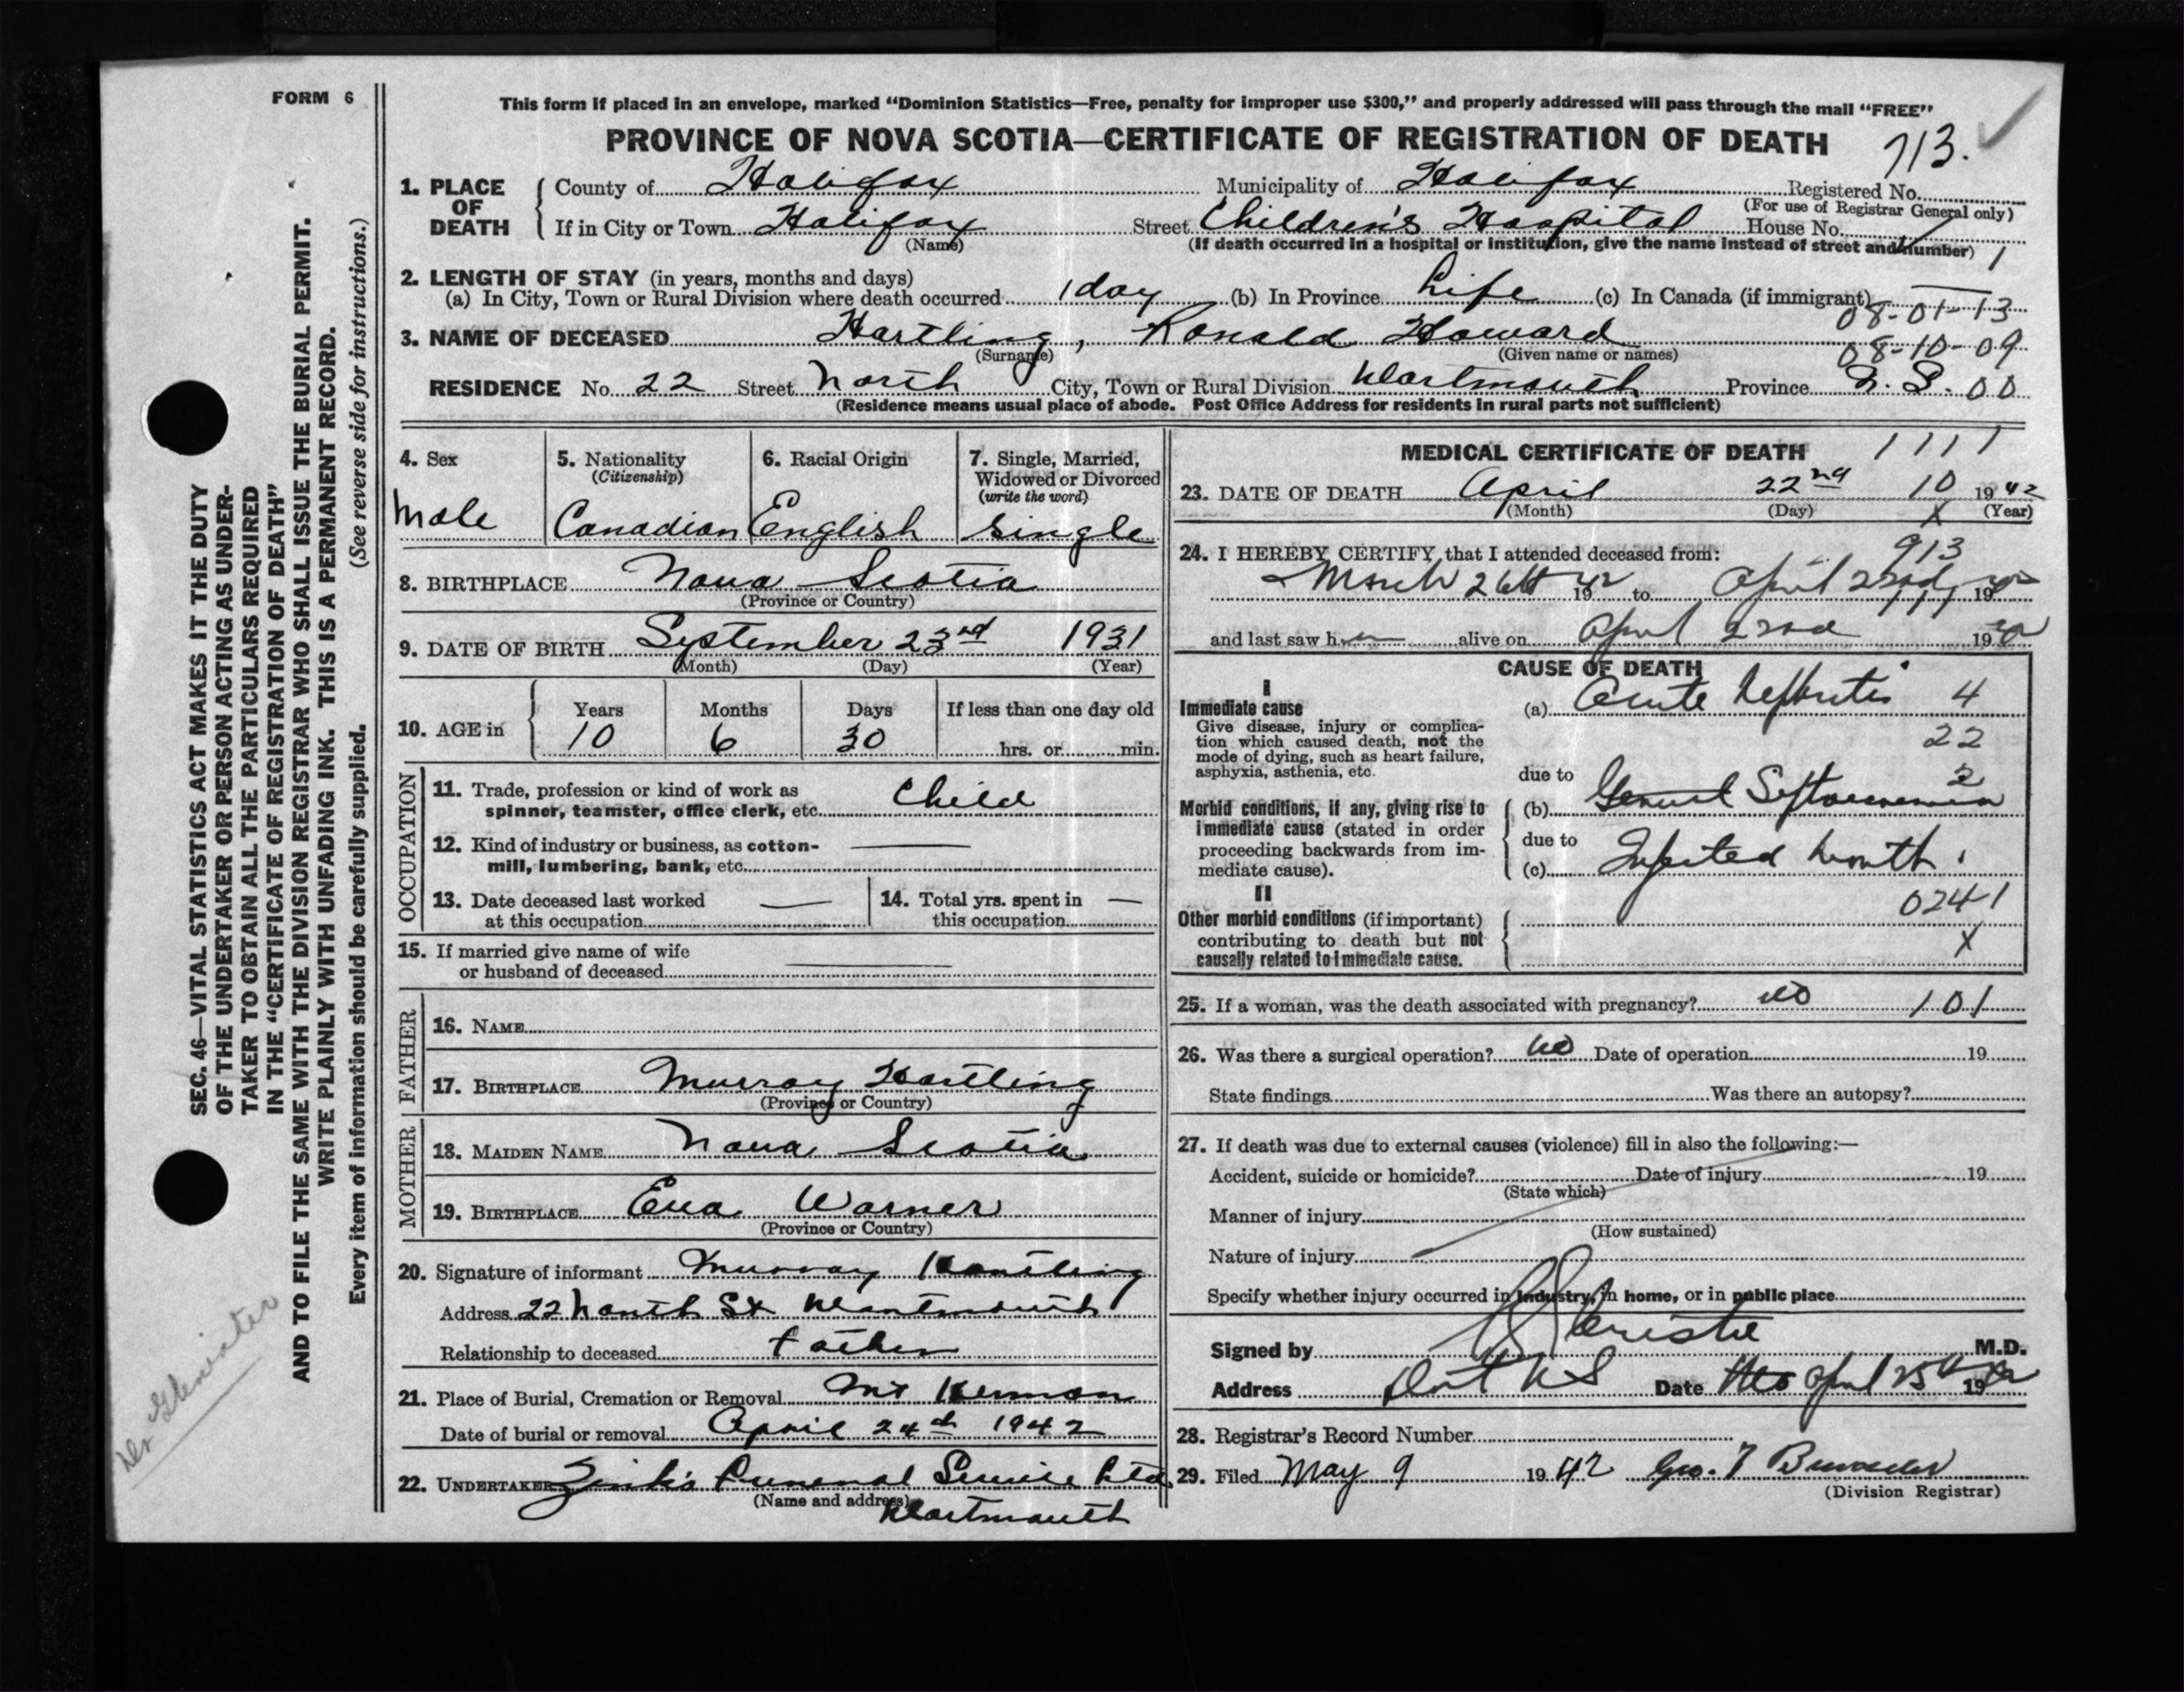 FORM 6
This form if placed in an envelope, marked "Dominion Statistics—Free, penalty for improper use $300," and properly addressed will pass through the mail "FREE"
PROVINCE OF NOVA SCOTIA—CERTIFICATE OF REGISTRATION OF DEATH
713.
1. PLACE OF DEATH { County of Halifax Municipality of Halifax Registered No.
(For use of Registrar General only)
If in City or Town Halifax Street Children's Hospital House No.
(Name) (If death occurred in a hospital or institution, give the name instead of street and number) 1
2. LENGTH OF STAY (in years, months and days)
(a) In City, Town or Rural Division where death occurred 1 day (b) In Province Life (c) In Canada (if immigrant)
08-01-13
3. NAME OF DECEASED Hartling, Ronald Howard
(Surname) (Given name or names) 08-10-09
RESIDENCE No. 22 Street North City, Town or Rural Division Dartmouth Province N. S. 00
(Residence means usual place of abode. Post Office Address for residents in rural parts not sufficient)
4. Sex
Male
5. Nationality
(Citizenship)
Canadian
6. Racial Origin
English
7. Single, Married,
Widowed or Divorced
(write the word)
Single
8. BIRTHPLACE Nova Scotia
(Province or Country)
9. DATE OF BIRTH September 23rd 1931
(Month) (Day) (Year)
10. AGE in { Years Months Days If less than one day old
10 6 30 hrs. or min.
OCCUPATION
11. Trade, profession or kind of work as
spinner, teamster, office clerk, etc. Child
12. Kind of industry or business, as cotton-
mill, lumbering, bank, etc.
13. Date deceased last worked
at this occupation
14. Total yrs. spent in
this occupation
15. If married give name of wife
or husband of deceased
FATHER
16. NAME
17. BIRTHPLACE Murray Hartling
(Province or Country)
MOTHER
18. MAIDEN NAME Nova Scotia
19. BIRTHPLACE Eva Warner
(Province or Country)
20. Signature of informant Murray Hartling
Address 22 North St Dartmouth
Relationship to deceased Father
21. Place of Burial, Cremation or Removal Mt Hermon
Date of burial or removal April 24th 1942
22. UNDERTAKER Zink's Funeral Service Ltd
(Name and address)
Dartmouth
MEDICAL CERTIFICATE OF DEATH 1111
23. DATE OF DEATH April 22nd 10 1942
(Month) (Day) X (Year)
24. I HEREBY CERTIFY that I attended deceased from: 913
March 26th 1942 to April 22nd, 1942
and last saw h alive on April 22nd 1942
CAUSE OF DEATH
I
Immediate cause
Give disease, injury or complica-
tion which caused death, not the
mode of dying, such as heart failure,
asphyxia, asthenia, etc.
(a) Acute Nephritis 4
22
due to 2
Morbid conditions, if any, giving rise to
immediate cause (stated in order
proceeding backwards from im-
mediate cause).
(b) General Septicaemia
due to
(c) Infected mouth
II
0241
Other morbid conditions (if important)
contributing to death but not
causally related to immediate cause.
X
25. If a woman, was the death associated with pregnancy? no 101
26. Was there a surgical operation? no Date of operation 19
State findings Was there an autopsy?
27. If death was due to external causes (violence) fill in also the following:—
Accident, suicide or homicide? Date of injury 19
(State which)
Manner of injury
(How sustained)
Nature of injury
Specify whether injury occurred in industry, in home, or in public place
Signed by Christie M.D.
Address Dart N S Date April 25th 1942
28. Registrar's Record Number
29. Filed May 9 1942 Geo. T
(Division Registrar)
SEC. 46—VITAL STATISTICS ACT MAKES IT THE DUTY
OF THE UNDERTAKER OR PERSON ACTING AS UNDER-
TAKER TO OBTAIN ALL THE PARTICULARS REQUIRED
IN THE "CERTIFICATE OF REGISTRATION OF DEATH"
AND TO FILE THE SAME WITH THE DIVISION REGISTRAR WHO SHALL ISSUE THE BURIAL PERMIT.
WRITE PLAINLY WITH UNFADING INK. THIS IS A PERMANENT RECORD.
Every item of information should be carefully supplied. (See reverse side for instructions.)
Dr